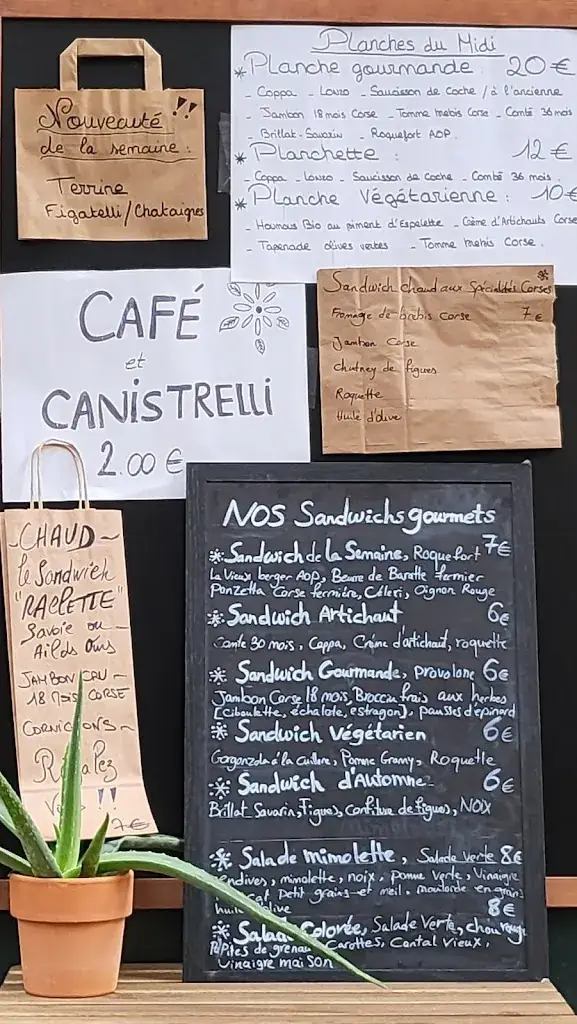 Nouveauté !!
de la semaine :
Terrine
Figatelli/Chataignes
Planches du Midi
* Planche gourmande : 20 €
- Coppa - Lonzo - Saucisson de Coche / à l'ancienne
- Jambon 18 mois Corse - Tomme brebis Corse - Comté 36 mois
- Brillat-Savarin - Roquefort AOP.
* Planchette : 12 €
- Coppa - Lonzo - Saucisson de Coche - Comté 36 mois.
* Planche Végétarienne : 10€
- Houmous Bio au piment d'Espelette - Crème d'Artichauts Corse
- Tapenade olives vertes - Tomme brebis Corse.
CAFÉ
et
CANISTRELLI
2.00 €
Sandwich chaud aux Spécialités Corses
Fromage de brebis Corse 7€
Jambon Corse
Chutney de figues
Roquette
Huile d'olive
-CHAUD-
le Sandwich
"RACLETTE"
Savoie ou
Ail des Ours
JAMBON CRU -
18 MOIS CORSE
CORNICHONS -
Régalez
Vous !!
7€
NOS Sandwichs gourmets
* Sandwich de la Semaine, Roquefort 7€
Le Vieux berger AOP, Beurre de Baratte fermier
Panzetta Corse fermière, Céleri, Oignon Rouge
* Sandwich Artichaut 6€
Comté 30 mois, Coppa, Crème d'artichaut, roquette
* Sandwich Gourmande, provolone 6€
Jambon Corse 18 mois, Broccin frais aux herbes
[ciboulette, échalote, estragon], pousses d'épinard
* Sandwich Végétarien 6€
Gorgonzola à la cuillère, Pomme Granny, Roquette
* Sandwich d'Automne 6€
Brillat Savarin, Figues, Confiture de figues, NOIX
* Salade mimolette, Salade verte 8€
endives, mimolette, noix, pomme verte, Vinaigre
petit grains et miel, moutarde en grains
huile olive 8€
* Salade Colorée, Salade Verte, chou rouge
Pépites de grenade Carottes, Cantal Vieux,
Vinaigre maison